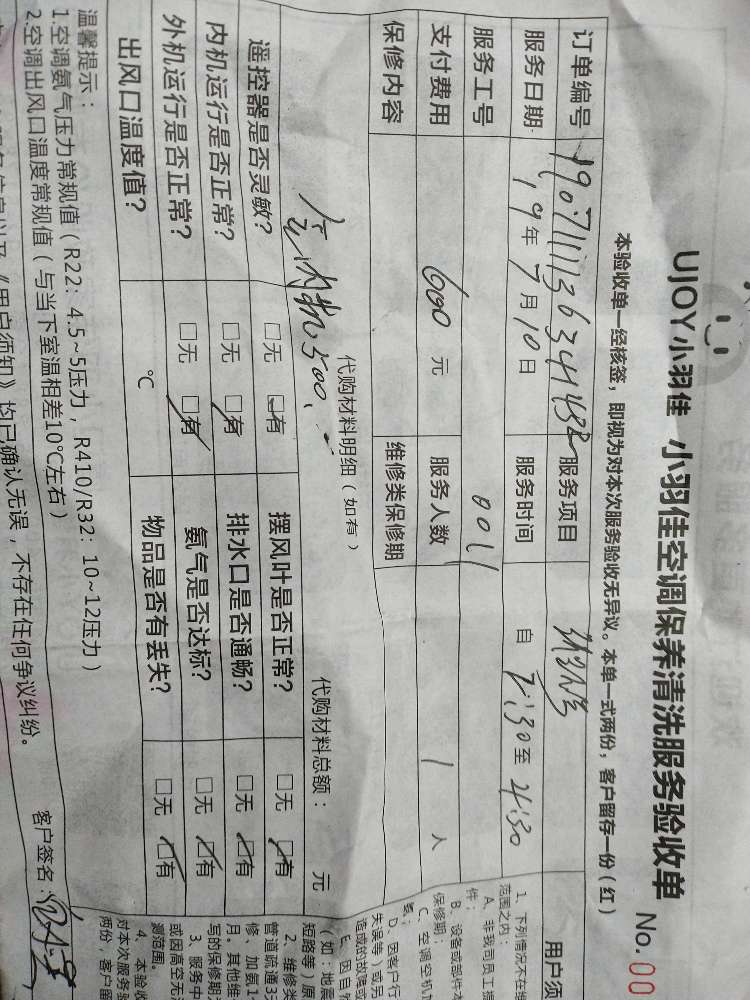 UJOY小羽佳 小羽佳空调保养清洗服务验收单
No.00
本验收单一经核签，即视为对本次服务验收无异议。本单一式两份，客户留存一份（红）
订单编号
服务项目
服务日期 19年7月10日
服务时间 自 2:30至4:30
服务工号 0011
支付费用 600元
服务人数 1人
保修内容
维修类保修期
代购材料明细（如有）
代购材料总额： 元
500.
遥控器是否灵敏？ □无 □有
摆风叶是否正常？ □无 □有
内机运行是否正常？ □无 □有
排水口是否通畅？ □无 □有
外机运行是否正常？ □无 □有
氨气是否达标？ □无 □有
出风口温度值？ ℃
物品是否有丢失？ □无 □有
温馨提示：
1.空调氨气压力常规值（R22：4.5~5压力，R410/R32：10~12压力）
2.空调出风口温度常规值（与当下室温相差10℃左右）
《用户须知》均已确认无误，不存在任何争议纠纷。
客户签名：
用户须
1、下列情况不在维
范围之内：
A、非我司员工提
件；
B、设备或部件本
保修期；
C、空调空机加
D、因客户行
失误等）或另
造成的故障或
E、因自然
（如：地震
短路等）原
2、维修类
管道疏通3天
修、加氨1个
月。其他维
写的保修期
3、服务中
或因高空无
4、本验收
对本次服务
两份，客户留